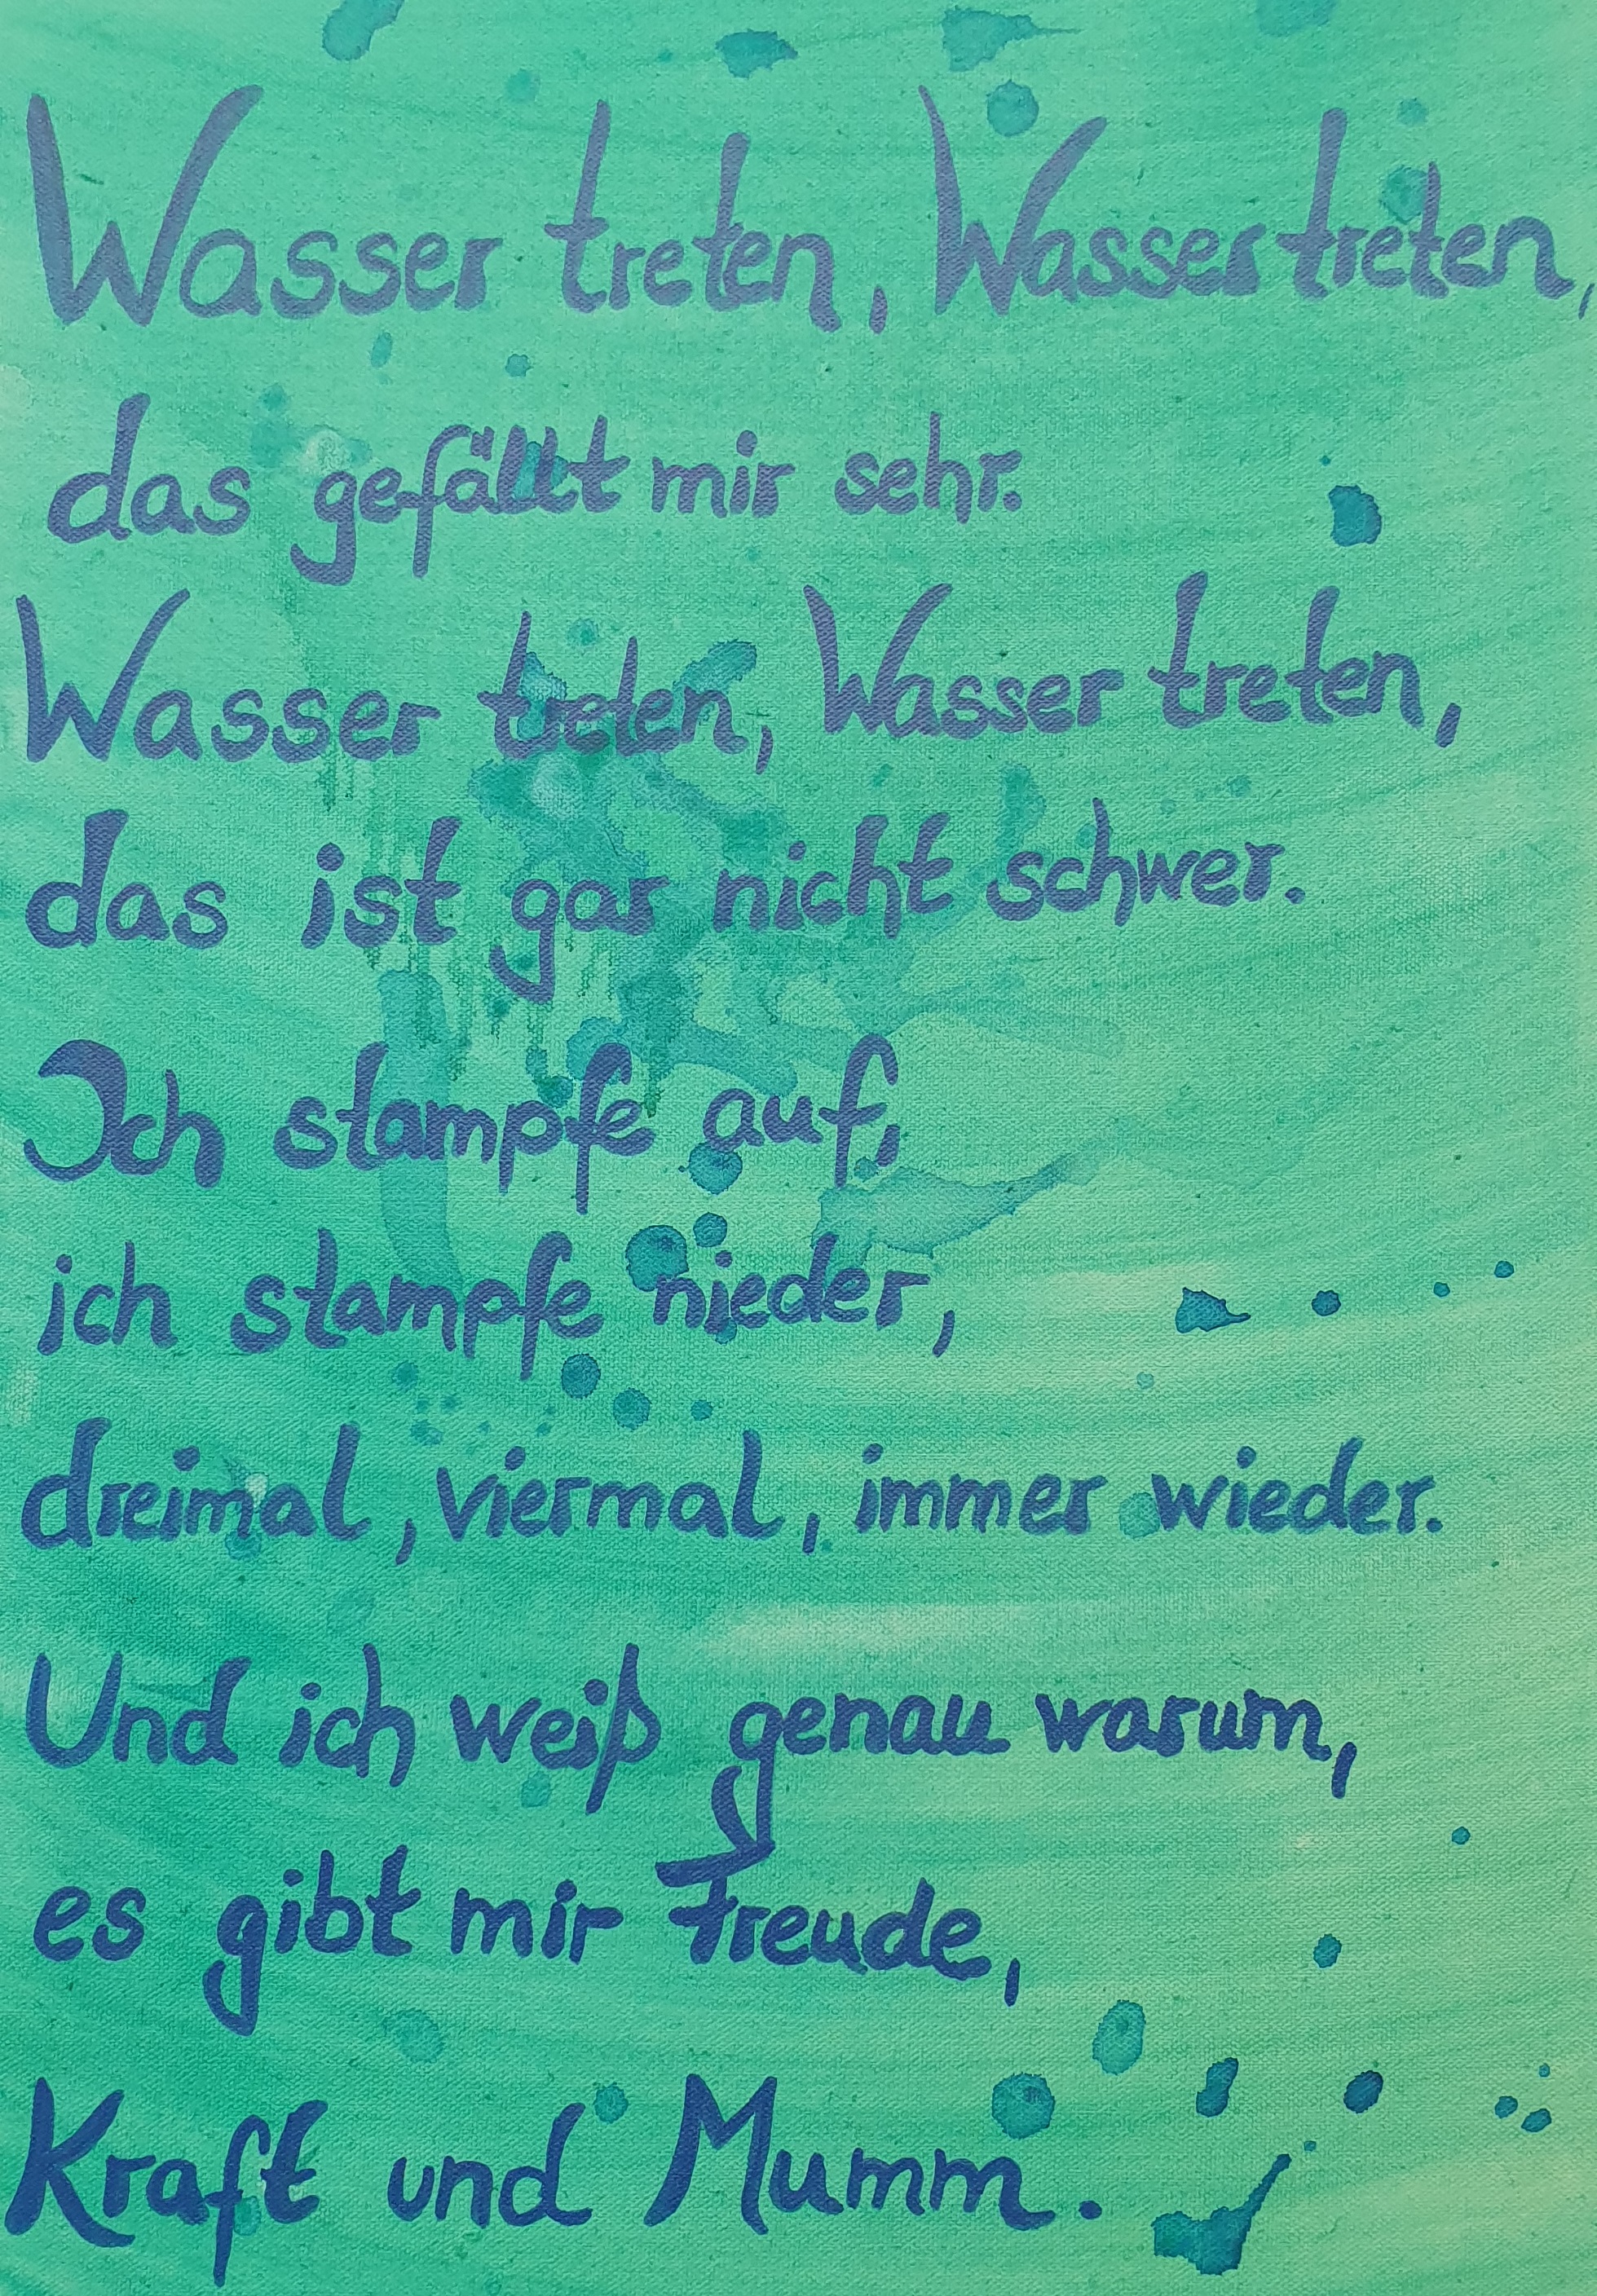 Wasser treten, Wasser treten,
das gefällt mir sehr.
Wasser treten, Wasser treten,
das ist gar nicht schwer.
Ich stampfe auf,
ich stampfe nieder,
dreimal, viermal, immer wieder.
Und ich weiß genau warum,
es gibt mir Freude,
Kraft und Mumm.